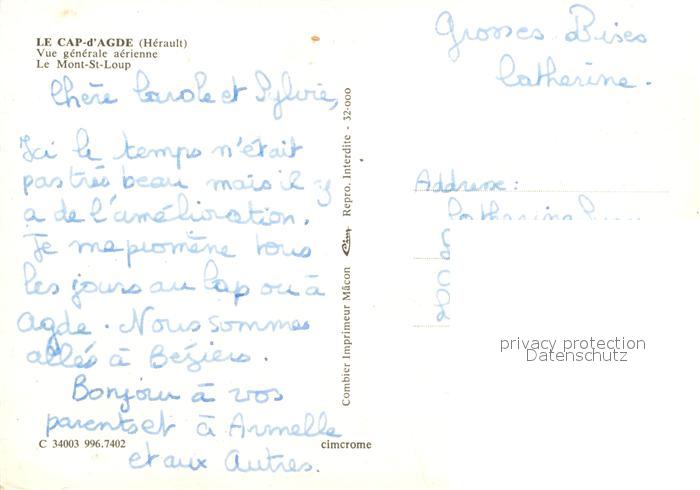 LE CAP-d'AGDE (Hérault)
Vue générale aérienne
Le Mont-St-Loup
Chère Carole et Sylvie,
Ici le temps n'était
pas très beau mais il y
a de l'amélioration.
Je me promène tous
les jours au Cap ou à
Agde. Nous sommes
allés à Béziers.
Bonjour à vos
parents et à Armelle
et aux Autres.
C 34003 996.7402
cimcrome
Combier Imprimeur Mâcon Cim Repro. Interdite - 32-000
Grosses Bises
Catherine.
Addresse:
Catherine
privacy protection
Datenschutz